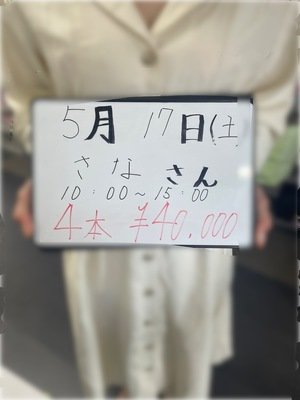 5月 17日(土
さな さん
10:00〜15:00
4本 ¥40.000